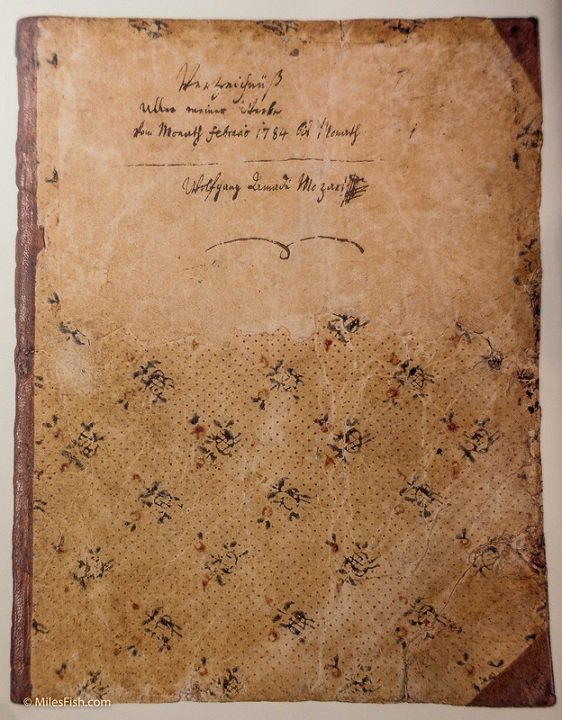 Verzeichnüß
aller meiner Werke
Vom Monath febrario 1784 bis Monath 1
Wolfgang Amadé Mozart
© MilesFish.com